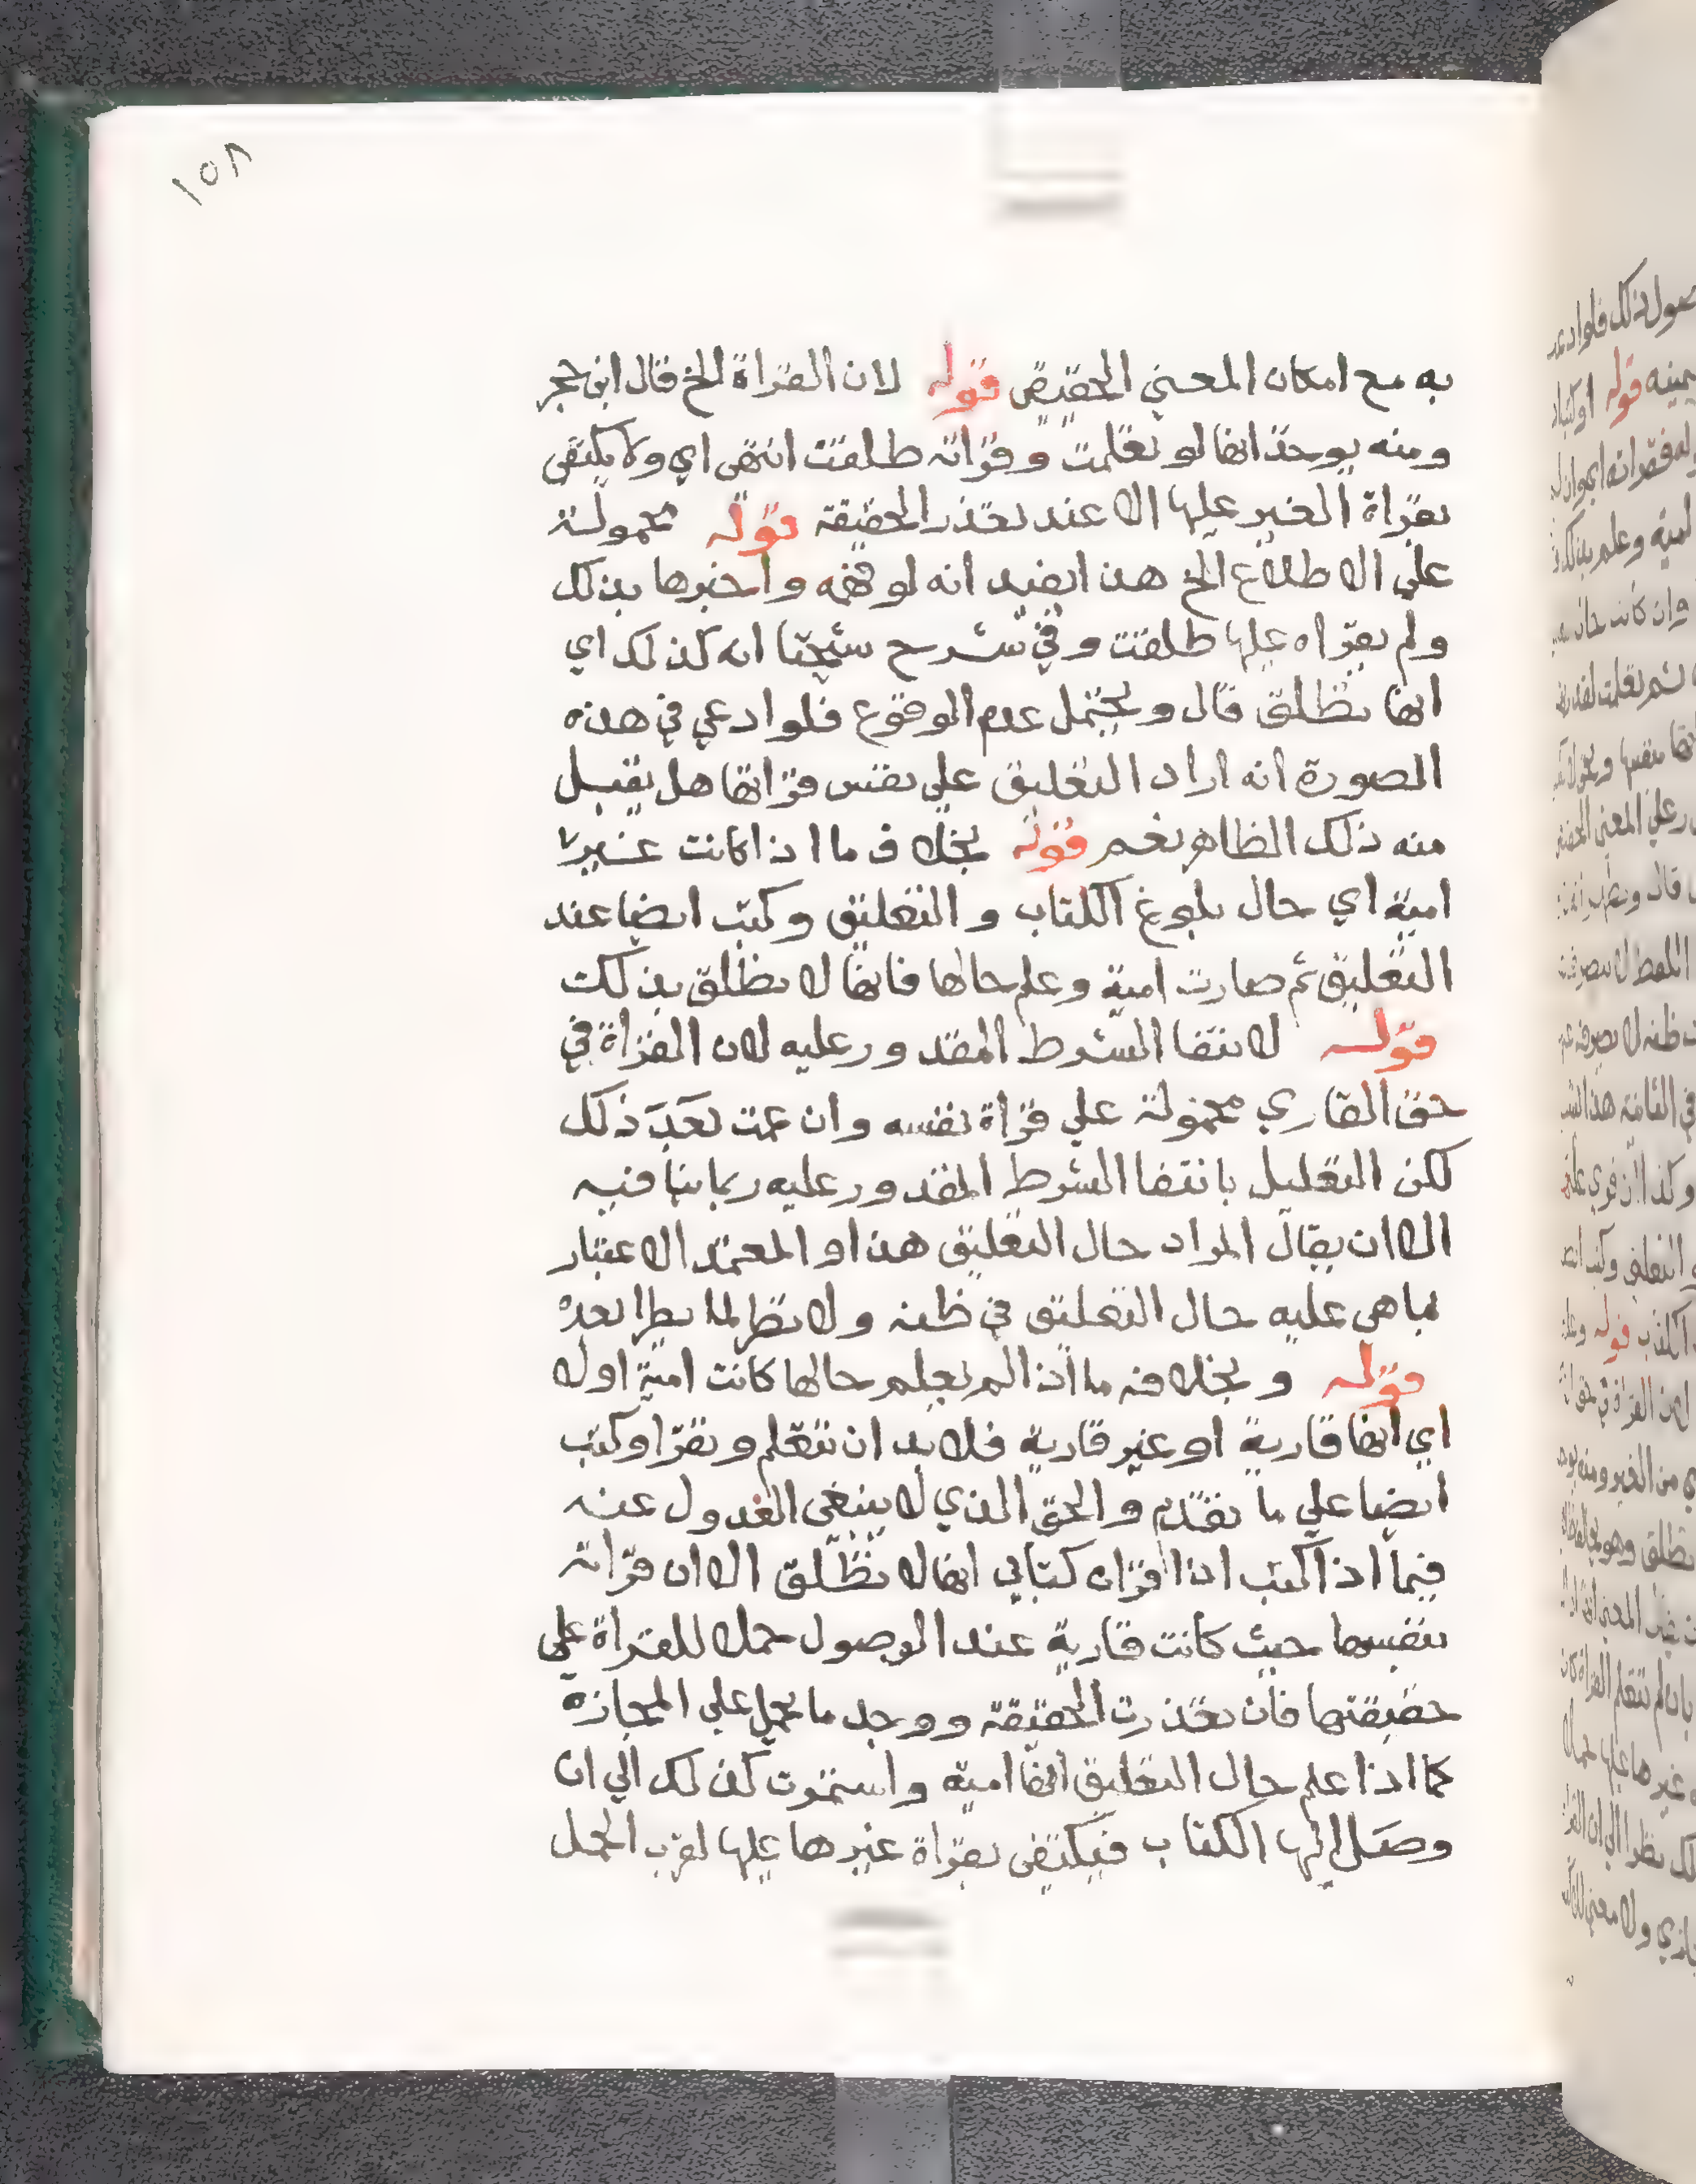 ١٥٨
به مع امكان المعني الحقيقي قوله لان القراة الخ قال ابن حجر
ومنه يوخذ انها لو تعلمت وقراته طلقت انتهى اي ولا يكتفى
بقراة الغير عليها الا عند تعذر الحقيقة قوله محمولة
علي الاطلاع الخ هذا يفيد انه لو فهمه واخبرها بذلك
ولم يقراه عليها طلقت وفي شرح شيخنا انه كذلك اي
انها تطلق قال ويحتمل عدم الوقوع فلو ادعي في هذه
الصورة انه اراد التعليق علي نفس قراتها هل يقبل
منه ذلك الظاهر نعم قوله بخلاف ما اذا كانت غير
امية اي حال بلوغ الكتاب والتعليق وكتب ايضا عند
التعليق ثم صارت امية وعلم حالها فانها لا تطلق بذلك
قوله لانتفا الشرط المقدور عليه لان القراة في
حق القاري محمولة علي قراة نفسه وان عمت بعد ذلك
لكن التعليل بانتفا الشرط المقدور عليه ربما ينافيه
الا ان يقال المراد حال التعليق هذا والمعتمد الاعتبار
بما هي عليه حال التعليق في ظنه ولا نظر لما يطرا بعده
قوله وبخلافه ما اذا لم يعلم حالها كانت امية اولا
اي انها قارية او غير قارية فلا بد ان تتعلم وتقرا وكتب
ايضا علي ما تقدم والحق الذي لا ينبغي العدول عنه
فيما اذا كتب اذا قرات كتابي انها لا تطلق الا ان قراته
بنفسها حيث كانت قارية عند الوصول حملا للقراة علي
حقيقتها فان تعذرت الحقيقة ووجد ما يحمل علي المجازة
كما اذا علم حال التعليق انها امية واستمرت كذلك الي ان
وصل اليها الكتاب فيكتفى بقراة غيرها عليها لقرب الحمل